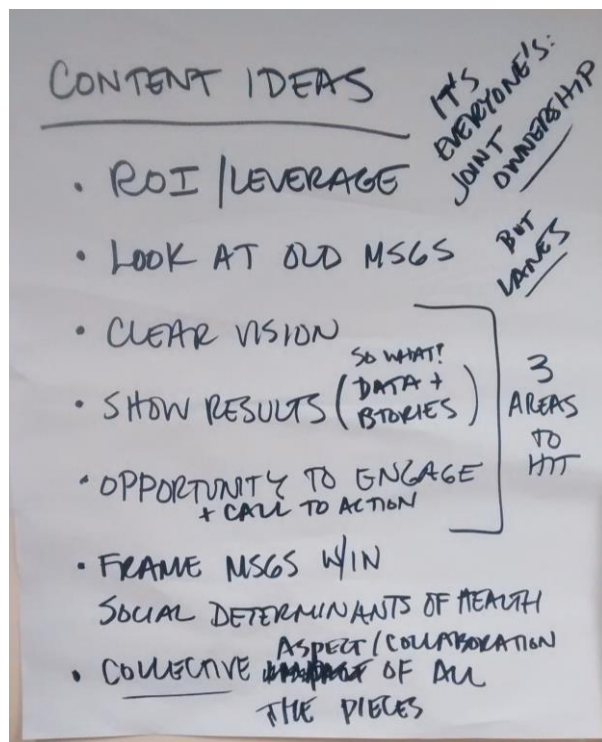 CONTENT IDEAS
IT'S
EVERYONE'S:
JOINT
OWNERSHIP
BUT
LANES
• ROI / LEVERAGE
• LOOK AT OLD MSGS
• CLEAR VISION
• SHOW RESULTS (SO WHAT!
DATA +
STORIES)
• OPPORTUNITY TO ENGAGE
+ CALL TO ACTION
3
AREAS
TO
HIT
• FRAME MSGS W/IN
SOCIAL DETERMINANTS OF HEALTH
• COLLECTIVE ASPECT / COLLABORATION
OF ALL
THE PIECES